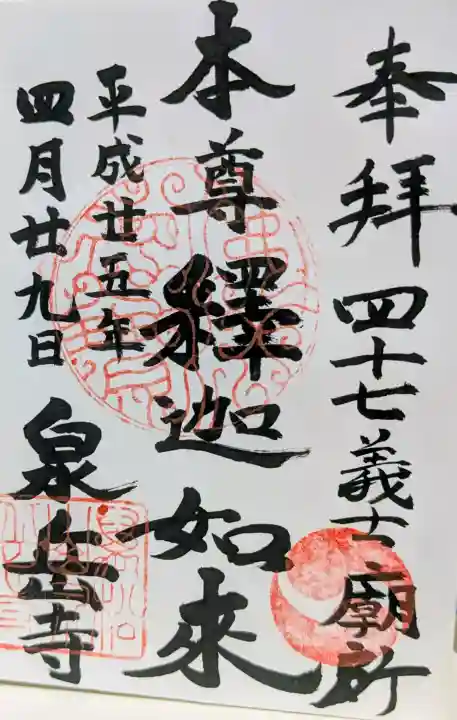 奉拝 四十七義士廟所
本尊釋迦如來
平成廿五年
四月廿九日
泉岳寺